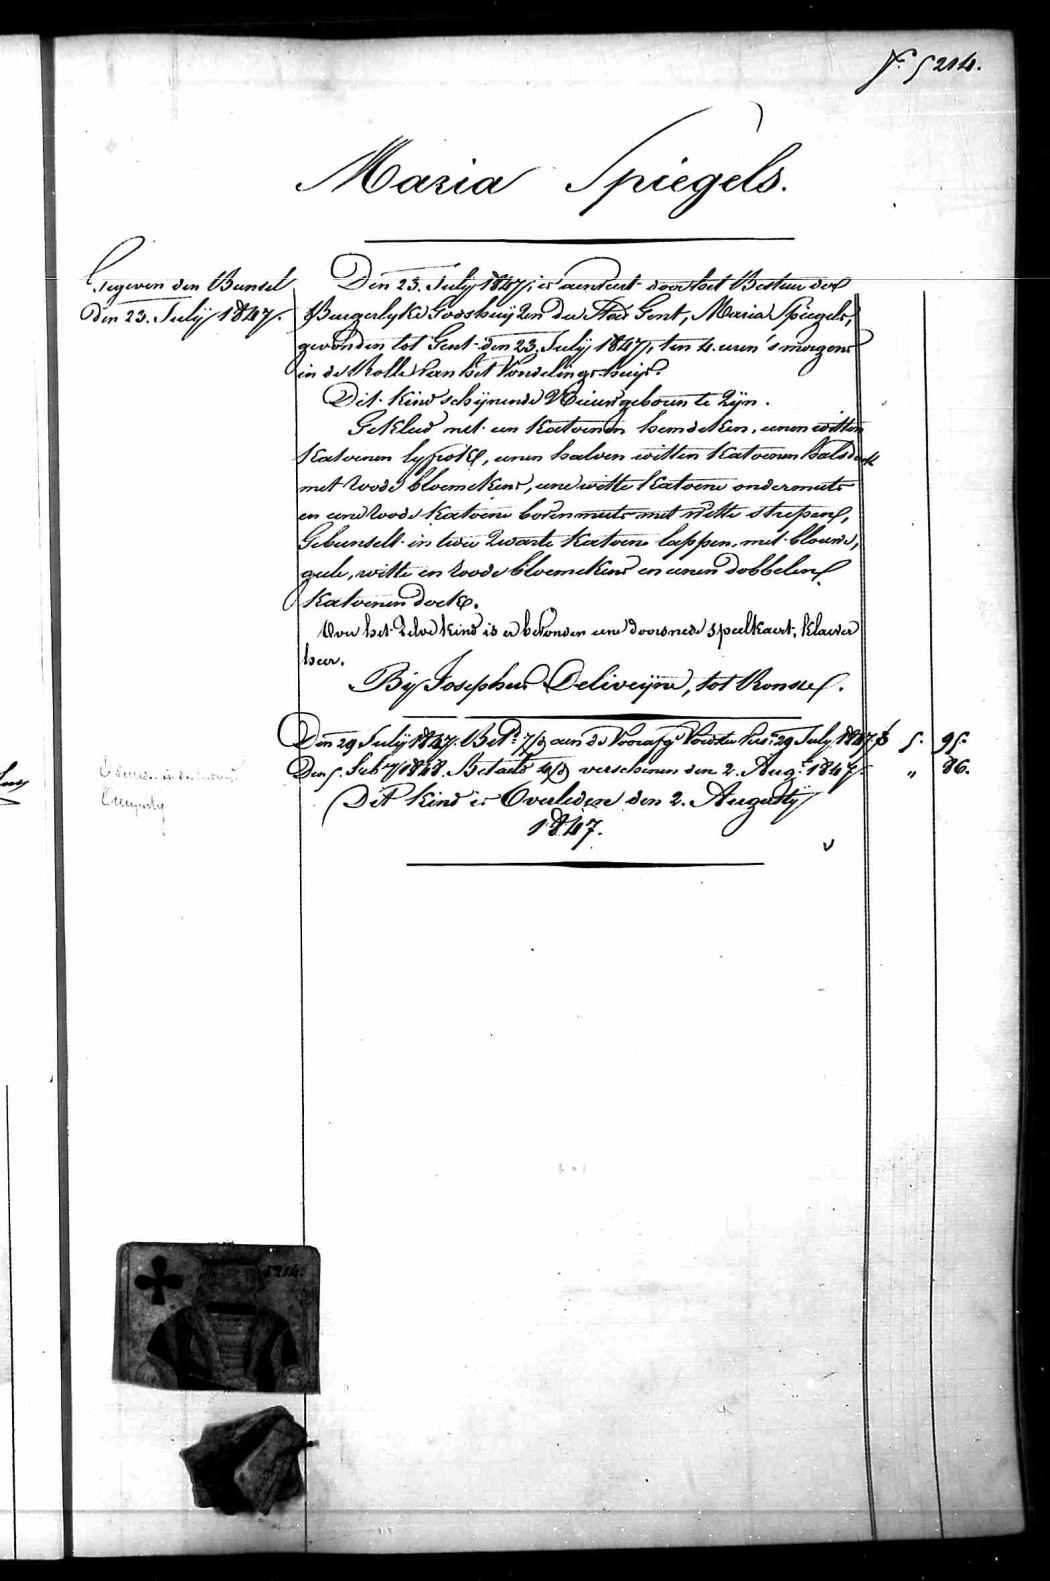 N.º 5214.
Maria Spiegels.
Gegeven den Bunsel
den 23. Julij 1847.
Den 23. Julij 1847, is aenveert door het Bestuer der
Burgerlyke Godshuijzen der Stad Gent, Maria Spiegels,
gevonden tot Gent den 23. Julij 1847, ten 4. uren 's morgens
in de Rolle van het Vondelingshuijs.
Dit kind schijnende Nieuwgeboren te zijn.
Gekleed met een katoenen hemdeken, eenen witten
katoenen lyfrok, eenen halven witten katoenen halsdoek
met roode bloemekens, eene witte katoene ondermuts
en eene roode katoene bovenmuts met witte strepen,
Gebunselt in twee zwarte katoene lappen, met blauwe,
geele, witte en roode bloemekens en eenen dobbelen
katoenen doek.
Voor het zelve kind is er bevonden eene doorsnede speelkaert, klaver
heer.
Bij Josephus Deliveyne, tot Ronsse.
Den 29 Julij 1847. Bet.d 7/d aen de Voorafg.e Voedster vers.n 29 July 1847. f 5. 95.
Den 5. Feb.y 1848. Betaeld 4/d verschenen den 2. Aug.t 1847. „ 86.
Dit kind is Overleden den 2. Augustij
1847.
5214.